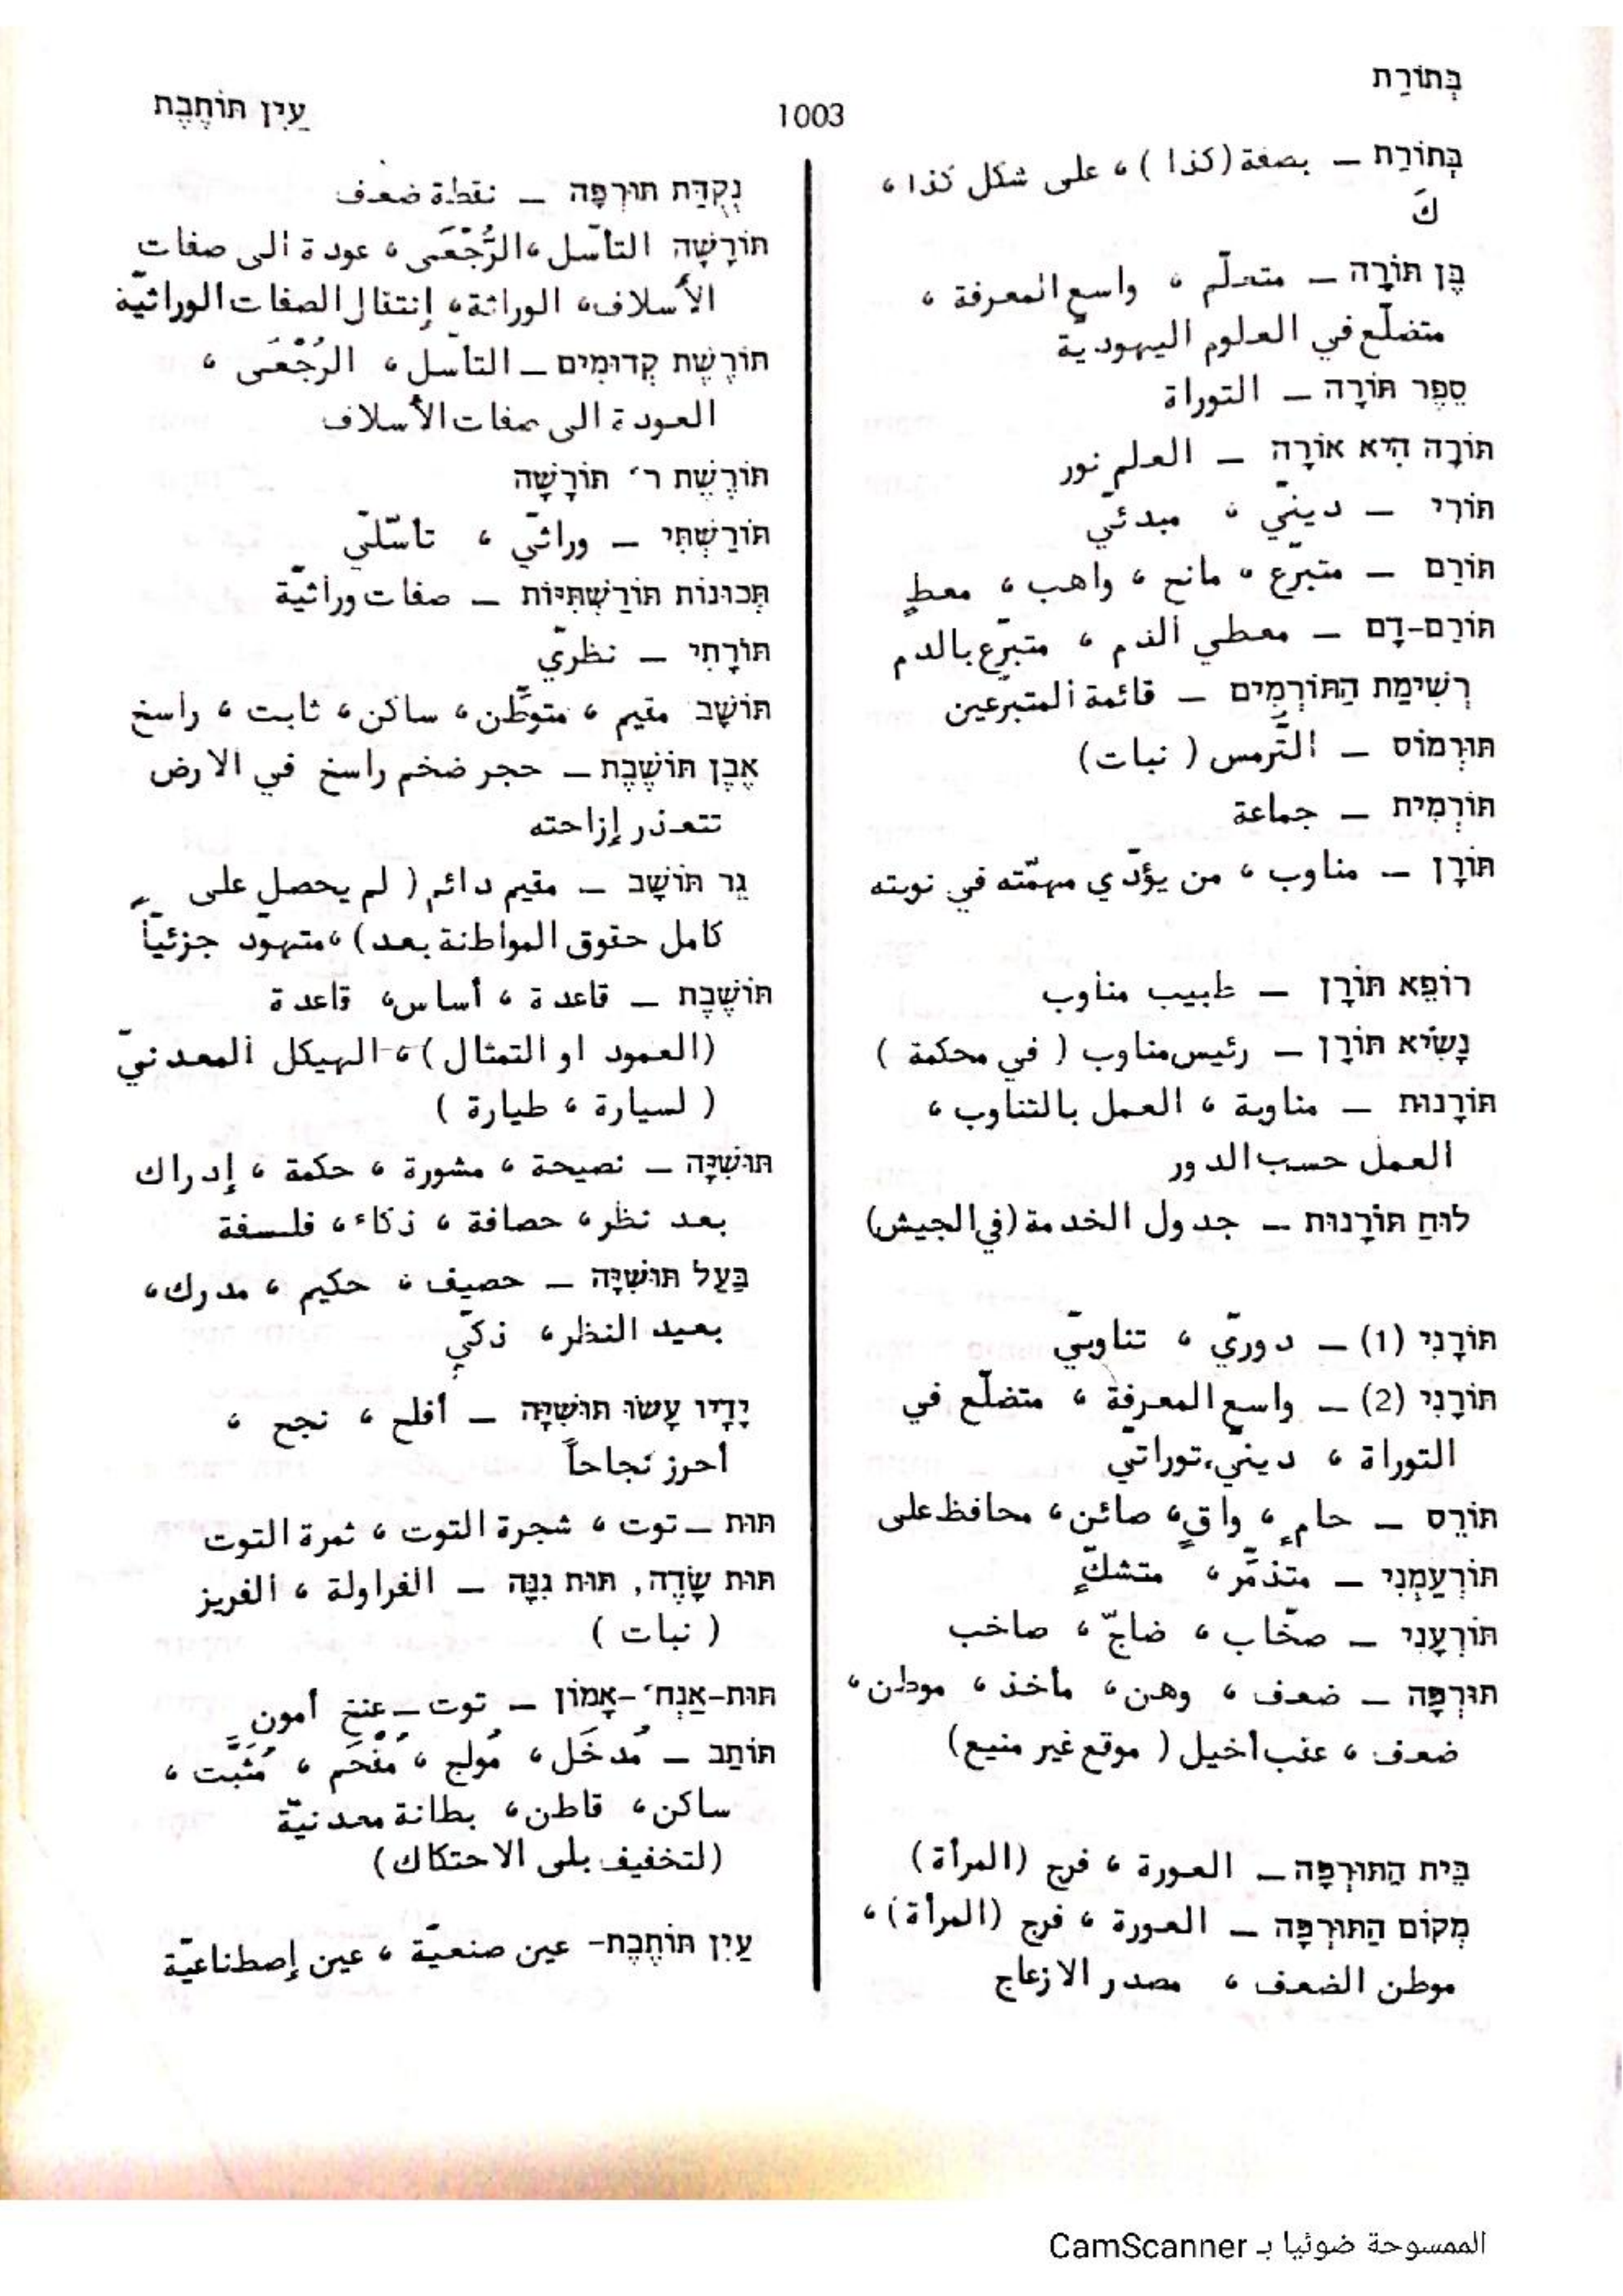 בְּתוֹרַת
1003
עַיִן תּוֹתֶבֶת
בְּתוֹרַת – بصفة (كذا) ، على شكل كذا ،
كَ
בֶּן תּוֹרָה – متعلّم ، واسع المعرفة ،
متضلّع في العلوم اليهوديّة
סֵפֶר תּוֹרָה – التوراة
תּוֹרָה הִיא אוֹרָה – العلم نور
תּוֹרִי – دينيّ ، مبدئيّ
תּוֹרֵם – متبرّع ، مانح ، واهب ، معطٍ
תּוֹרֵם-דָם – معطي الدم ، متبرّع بالدم
רְשִׁימַת הַתּוֹרְמִים – قائمة المتبرّعين
תּוּרְמוֹס – التُّرمس ( نبات)
תּוֹרְמִית – جماعة
תּוֹרָן – مناوب ، من يؤدّي مهمّته في نوبته
רוֹפֵא תּוֹרָן – طبيب مناوب
נָשִׂיא תּוֹרָן – رئيس مناوب ( في محكمة )
תּוֹרָנוּת – مناوبة ، العمل بالتناوب ،
العمل حسب الدور
לוּחַ תּוֹרָנוּת – جدول الخدمة (في الجيش)
תּוֹרָנִי (1) – دوريّ ، تناوبيّ
תּוֹרָנִי (2) – واسع المعرفة ، متضلّع في
التوراة ، دينيّ، توراتيّ
תּוֹרֵס – حامٍ ، واقٍ، صائن ، محافظ على
תּוֹרְעַמְנִי – متذمّر ، متشكٍّ
תּוֹרְעָנִי – صخّاب ، ضاجّ ، صاخب
תּוּרְפָּה – ضعف ، وهن ، مأخذ ، موطن ،
ضعف ، عقب أخيل ( موقع غير منيع)
בֵּית הַתּוּרְפָּה – العورة ، فرج (المرأة)
מְקוֹם הַתּוּרְפָּה – العورة ، فرج (المرأة) ،
موطن الضعف ، مصدر الازعاج
נְקֻדַּת תּוּרְפָּה – نقطة ضعف
תּוֹרָשָׁה التأسّل ، الرُّجْعَى ، عودة الى صفات
الأسلاف، الوراثة ، إنتقال الصفات الوراثيّة
תּוֹרֶשֶׁת קְדוּמִים – التأسّل ، الرُجْعَى ،
العودة الى صفات الأسلاف
תּוֹרֶשֶׁת ר׳ תּוֹרָשָׁה
תּוֹרַשְׁתִּי – وراثيّ ، تأسّليّ
תְּכוּנוֹת תּוֹרַשְׁתִּיּוֹת – صفات وراثيّة
תּוֹרָתִי – نظريّ
תּוֹשָׁב مقيم ، متوطّن ، ساكن ، ثابت ، راسخ
אֶבֶן תּוֹשֶׁבֶת – حجر ضخم راسخ في الارض
تتعذر إزاحته
גֵּר תּוֹשָׁב – مقيم دائم ( لم يحصل على
كامل حقوق المواطنة بعد) ، متهوّد جزئيّاً
תּוֹשֶׁבֶת – قاعدة ، أساس ، قاعدة
(العمود او التمثال) ، الهيكل المعدنيّ
( لسيارة ، طيارة )
תּוּשִׁיָּה – نصيحة ، مشورة ، حكمة ، إدراك
بعد نظر ، حصافة ، ذكاء ، فلسفة
בַּעַל תּוּשִׁיָּה – حصيف ، حكيم ، مدرك ،
بعيد النظر ، ذكيّ
יָדָיו עָשׂוּ תּוּשִׁיָּה – أفلح ، نجح ،
أحرز نجاحاً
תּוּת – توت ، شجرة التوت ، ثمرة التوت
תּוּת שָׂדֶה, תּוּת גִּנָּה – الفراولة ، الفريز
( نبات )
תּוּת-אַנְח׳-אָמוֹן – توت – عنخ أمون
תּוֹתַב – مُدخَل ، مُولج ، مُقْحَم ، مُثَبَّت ،
ساكن ، قاطن ، بطانة معدنيّة
(لتخفيف بلى الاحتكاك)
עַיִן תּוֹתֶבֶת- عين صنعيّة ، عين إصطناعيّة
الممسوحة ضوئيا بـ CamScanner